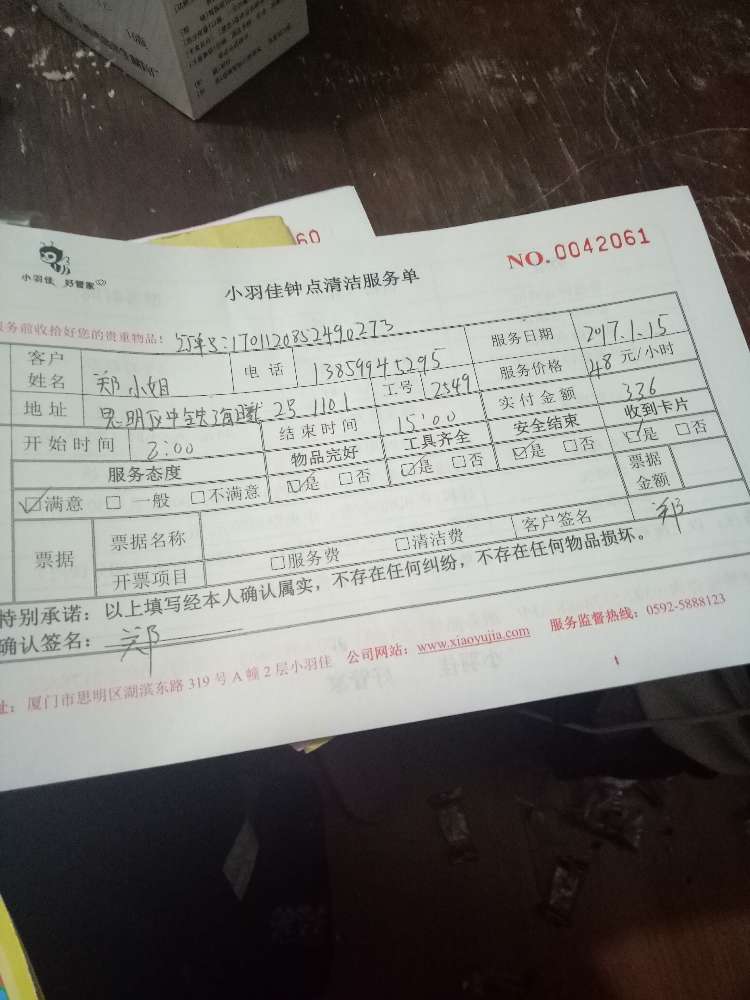 10版
60
小羽佳 好管家
小羽佳钟点清洁服务单
NO. 0042061
服务前收拾好您的贵重物品:
订单号:170112085249027​3
客户姓名 郑小姐 电话 13859945295 服务日期 2017.1.15
地址 思明区中铁海曙 25 1101 工号 2549 服务价格 48 元/小时
开始时间 8:00 结束时间 15:00 实付金额 336
服务态度 物品完好 工具齐全 安全结束 收到卡片
☑满意 □一般 □不满意 ☑是 □否 ☑是 □否 ☑是 □否 ☑是 □否
票据 票据名称 票据金额
开票项目 □服务费 □清洁费 客户签名 郑
特别承诺:以上填写经本人确认属实,不存在任何纠纷,不存在任何物品损坏。
确认签名: 郑
址:厦门市思明区湖滨东路 319 号 A 幢 2 层小羽佳 公司网站:www.xiaoyujia.com 服务监督热线:0592-5888123